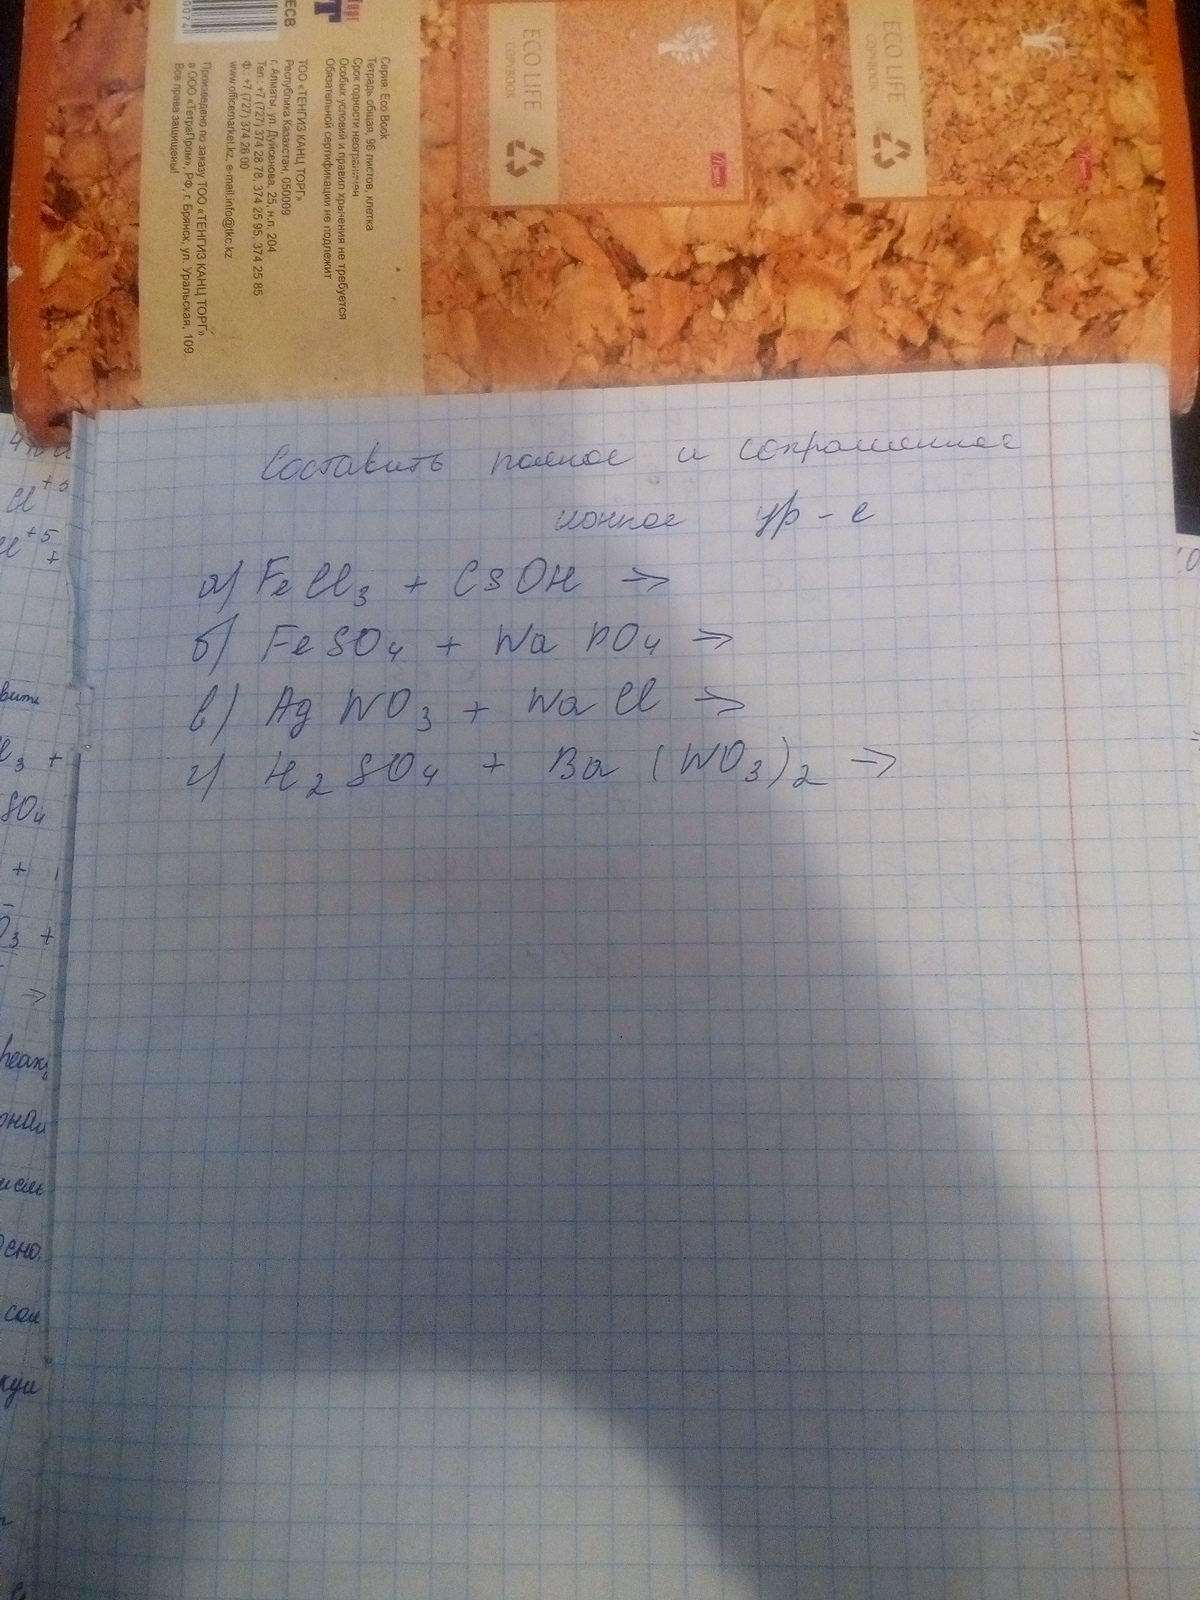 ECO LIFE
COPYBOOK
ECO LIFE
COPYBOOK
Серия: Eco Book
Тетрадь общая, 96 листов, клетка
Срок годности неограничен
Особых условий и правил хранения не требуется
Обязательной сертификации не подлежит
ТОО «ТЕНГИЗ КАНЦ ТОРГ»
Республика Казахстан, 050009
г. Алматы, ул. Дуйсенова, 25, н.п. 204
Тел.: +7 (727) 374 28 78, 374 25 95, 374 25 85
Ф.: +7 (727) 374 26 00
www.officemarket.kz, e-mail.info@tkc.kz
Произведено по заказу ТОО «ТЕНГИЗ КАНЦ ТОРГ»
в ООО «ТетраПром», РФ, г. Брянск, ул. Уральская, 109.
Все права защищены!
Составить полное и сокращенное
ионное ур-е
а) FeCl₃ + CsOH →
б) FeSO₄ + Na PO₄ →
в) Ag NO₃ + NaCl →
г) H₂SO₄ + Ba (NO₃)₂ →